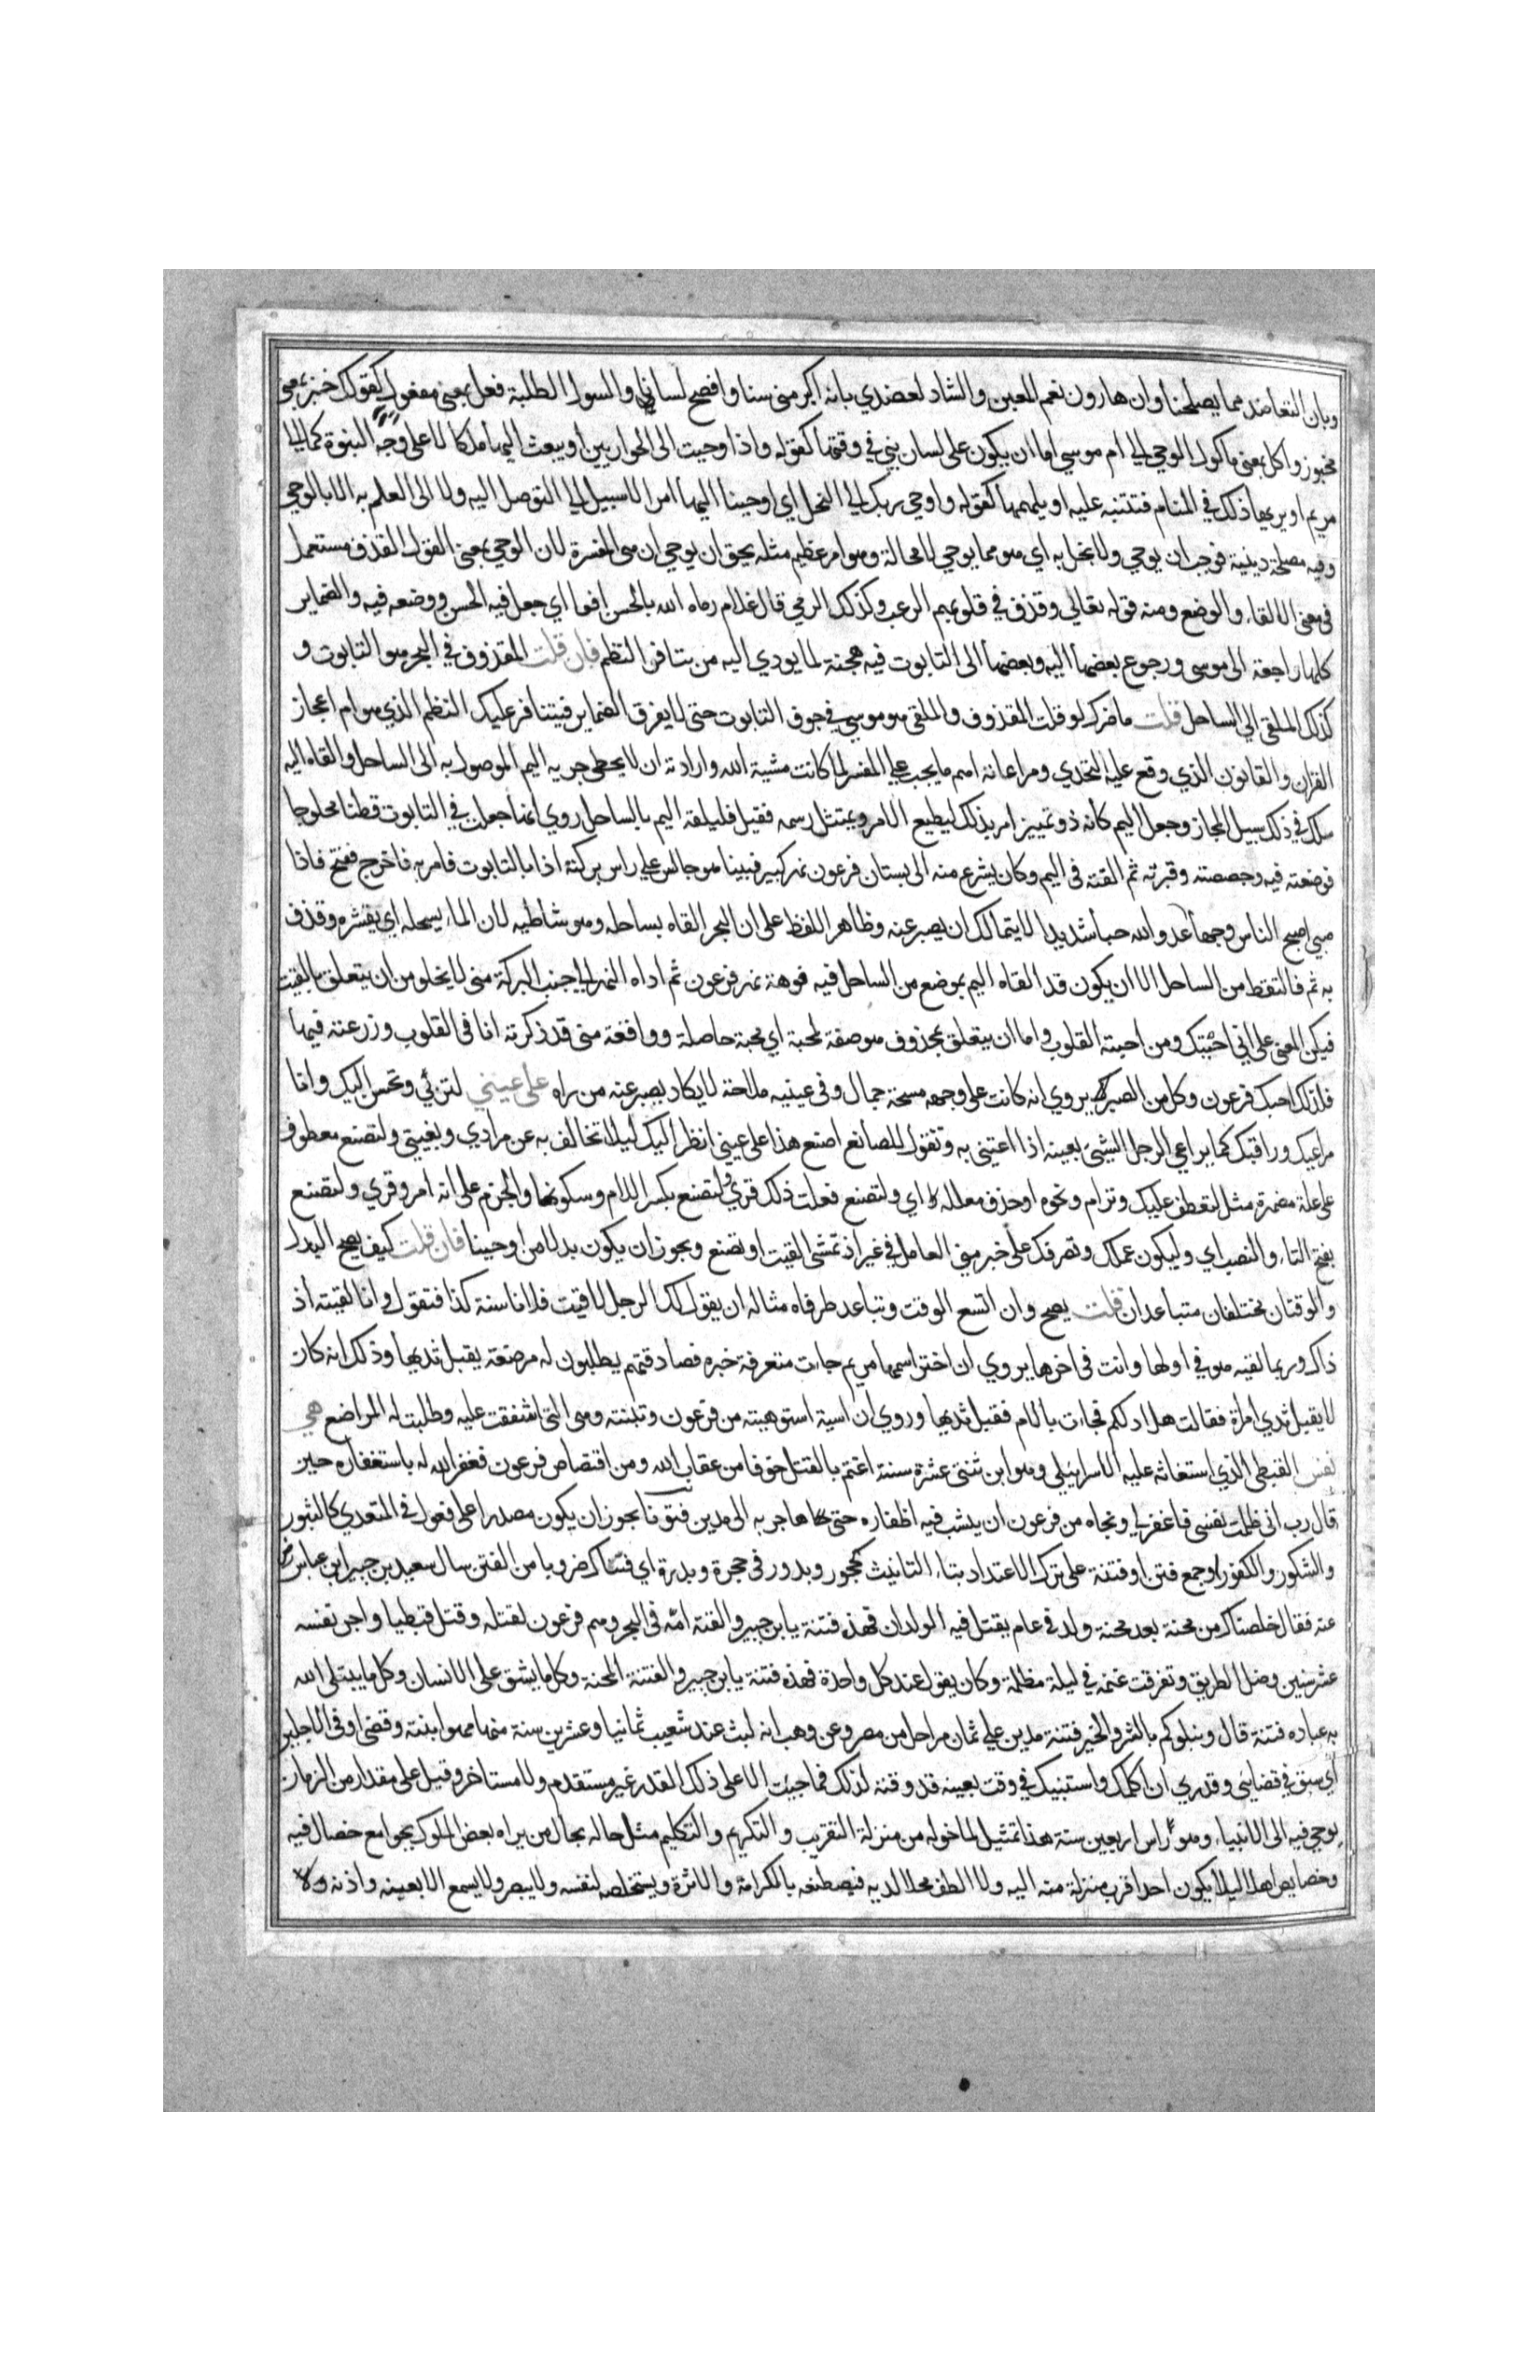 وبان التعاضد مما يصلحنا وان هارون نعم المعين والشاد لعضدي بانه اكبر مني سنا وافصح لسانا والسول الطلبة فعل بمعنى مفعول كقولك خبز بمعنى
مخبوز واكل بمعنى ماكول الوحي الى ام موسي اما ان يكون على لسان نبي في وقتها كقوله واذ اوحيت الى الحواريين أو يبعث اليها ملكا لا على وجه النبوة كما الى
مريم او يريها ذلك في المنام فتتنبه عليه او يلهمها كقوله واوحى ربك الى النحل اي اوحينا اليها امرا لا سبيل الى التوصل اليه ولا الى العلم به الا بالوحي
وفيه مصلحة دينية فوجب ان يوحي ولا يخل به اي هو مما يوحي لا محالة وهو امر عظيم مثله يحق ان يوحي ان هي المفسرة لان الوحي بمعنى القول القذف مستعمل
في معنى الالقاء والوضع ومنه قوله تعالى وقذف في قلوبهم الرعب وكذلك الرمي قال غلام رماه الله بالحسن يافعا اي جعل فيه الحسن ووضعه فيه والضماير
كلها راجعة الى موسى ورجوع بعضها اليه وبعضها الى التابوت فيه هجنة لما يودي اليه من تنافر النظم فان قلت المقذوف في البحر هو التابوت و
كذلك الملقى الي الساحل قلت ما ضرك لو قلت المقذوف والملقى هو موسي في جوف التابوت حتى لا يفرق الضماير فيتنافر عليك النظم الذي هو ام اعجاز
القران والقانون الذي وقع عليه التحدي ومراعاته اهم ما يجب على المفسر لما كانت مشية الله وارادته ان لا يخطي جرية اليم الموصول به الى الساحل والقاه اليه
سلك في ذلك سبيل المجاز وجعل اليم كأنه ذو تمييز امر بذلك ليطيع الامر ويمتثل رسمه فقيل فليلقه اليم بالساحل روي انها جعلت في التابوت قطنا محلوجا
فوضعته فيه وجصصته وقيرته ثم القته في اليم وكان يشرع منه الى بستان فرعون نهر كبير فبينا هو جالس على راس بركة اذا بالتابوت فامر به فاخرج ففتح فاذا
صبي اصبح الناس وجها عدو الله حبا شديدا لا يتمالك ان يصبر عنه وظاهر اللفظ على ان البحر القاه بساحله وهو شاطيه لان الماء يسحله اي يقشره وقذف
به ثم فالتقط من الساحل الا ان يكون قد القاه اليم بموضع من الساحل فيه فوهة نهر فرعون ثم اداه النهر الى جنب البركة مني لا يخلو من ان يتعلق بالقيت
فيكن المعنى على اني احببتك ومن احبته القلوب واما ان يتعلق بمحذوف هو صفة لمحبة اي محبة حاصلة وواقعة مني قد ذكرته انا في القلوب وزرعته فيها
فلذلك احبك فرعون وكل من ابصرك يروي انه كانت على وجهه مسحة جمال وفي عينيه ملاحة لا يكاد يصبر عنه من راه على عيني لتربي وتحسن اليك وانا
مراعيك وراقبك كما يراعي الرجل الشيئ بعينه اذا اعتنى به وتقول للصانع اصنع هذا على عيني انظر اليك ليلا تخالف به عن مرادي وبغيتي ولتصنع معطوف
على علة مضمرة مثل لتعطف عليك وترام ونحوه او حذف معلله اي ولتصنع فعلت ذلك قري ولتصنع بكسر اللام وسكونها والجزم على انه امر وقري ولتصنع
بفتح التاء والنصب اي وليكون عملك وتصرفك على خبر مني العامل في غير اذ تمشى القيت او تصنع ويجوز ان يكون بدلا من اوحينا فان قلت كيف يصح البدل
والوقتان مختلفان متباعدان قلت يصح وان اتسع الوقت وتباعد طرفاه مثاله ان يقول لك الرجل لاقيت فلانا سنة كذا فتقول وانا لقيته اذ
ذاك وربما لقيه هو في اولها وانت في اخرها يروي ان اخته اسمها مريم جات متعرفة خبره فصادفتهم يطلبون له مرضعة يقبل ثديها وذلك انه كان
لا يقبل ثدي امرأة فقالت هل ادلكم فجاءت بالام فقبل ثديها وروي ان اسية استوهبته من فرعون وتبنته وهي التي اشفقت عليه وطلبت له المراضع هي
نفس القبطي الذي استغاثه عليه الاسراييلي وهو ابن ثنتي عشرة سنة اغتم بالقتل خوفا من عقاب الله ومن اقتصاص فرعون فغفر الله له باستغفاره حين
قال رب اني ظلمت نفسي فاغفر لي ونجاه من فرعون ان ينشب فيه اظفاره حتى هاجر به الى مدين فتونا يجوز ان يكون مصدرا على فعول في المتعدي كالثبور
والشكور والكفور او جمع فتن او فتنة على ترك الاعتداد بتاء التانيث كحجور وبدور في حجرة وبدرة اي فتناك ضروبا من الفتن سال سعيد بن جبير ابن عباس رض
عنه فقال خلصناك من محنة بعد محنة ولد في عام يقتل فيه الولدان فهذه فتنة يا بن جبير والقته امه في البحر وهم فرعون لقتله وقتل قبطيا واجر نفسه
عشر سنين وضل الطريق وتفرقت غنمه في ليلة مظلمة وكان يقول عند كل واحدة فهذه فتنة يا بن جبير والفتنة المحنة وكل ما يشق على الانسان وكل ما يبتلي الله
به عباده فتنة قال ونبلوكم بالشر والخير فتنة مدين على ثمان مراحل من مصر وعن وهب انه لبث عند شعيب ثمانيا وعشرين سنة منها مهر ابنته وقضى اوفى الاجلين
اي سبق في قضايئ وقدري ان اكلمك واستنبيك في وقت بعينه قد وقته لذلك فما جيئت الا على ذلك القدر غير مستقدم ولا مستاخر وقيل على مقدار من الزمان
يوحي فيه الى الانبياء وهو رأس اربعين سنة هذا تمثيل لما خوله من منزلة التقريب والتكريم والتكليم مثل حاله بحال من يراه بعض الملوك بجوامع خصال فيه
وخصايص اهلا ليلا يكون احد اقرب منزلة منه اليه ولا الطف محلا لديه فيصطنعه بالكرامة والاثرة ويستخلصه لنفسه ولا يبصر ولا يسمع الا بعينه واذنه ولا